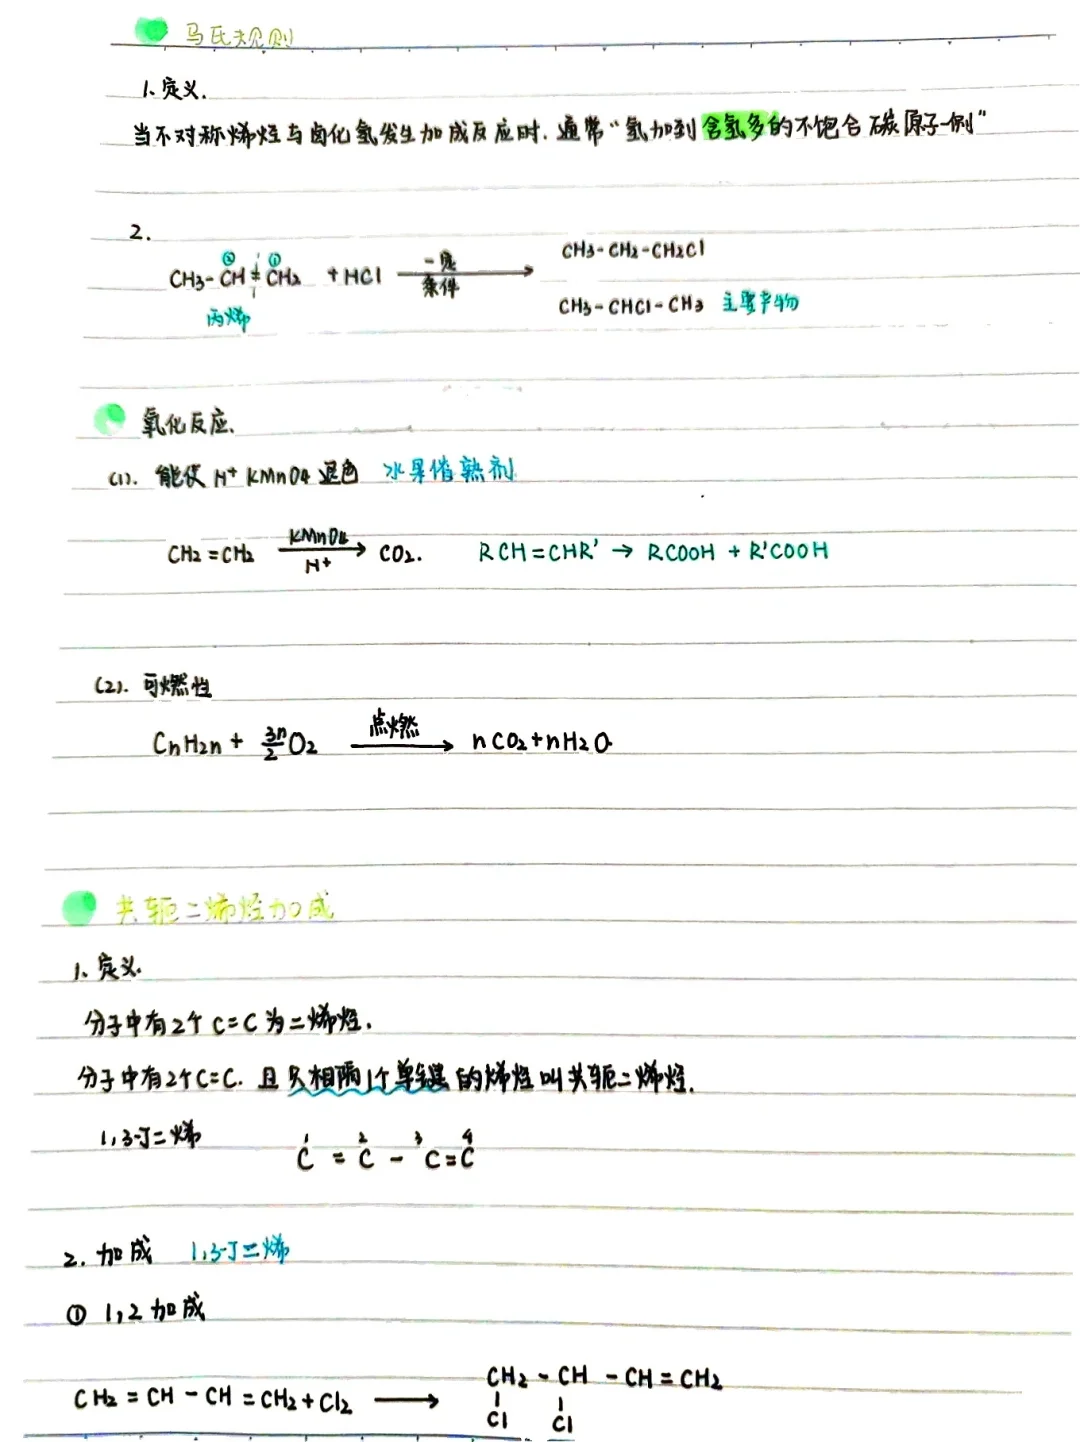 马氏规则
1、定义.
当不对称烯烃与卤化氢发生加成反应时.通常“氢加到含氢多的不饱合碳原子一侧”
2.
CH3-CH2-CH2Cl
② ①
CH3-CH=CH2 +HCl 一定条件
丙烯
CH3-CHCl-CH3 主要产物
氧化反应.
(1). 能使 H+ KMnO4 褪色 水果催熟剂
CH2=CH2 KMnO4 H+ → CO2. RCH=CHR' → RCOOH + R'COOH
(2). 可燃性
CnH2n + 3n/2 O2 点燃 → nCO2+nH2O
共轭二烯烃加成
1、定义.
分子中有2个C=C为二烯烃.
分子中有2个C=C.且只相隔1个单键的烯烃叫共轭二烯烃.
1,3-丁二烯
1 2 3 4
C = C - C=C
2. 加成 1,3-丁二烯
① 1,2加成
CH2=CH-CH=CH2+Cl2 → CH2-CH-CH=CH2
Cl Cl